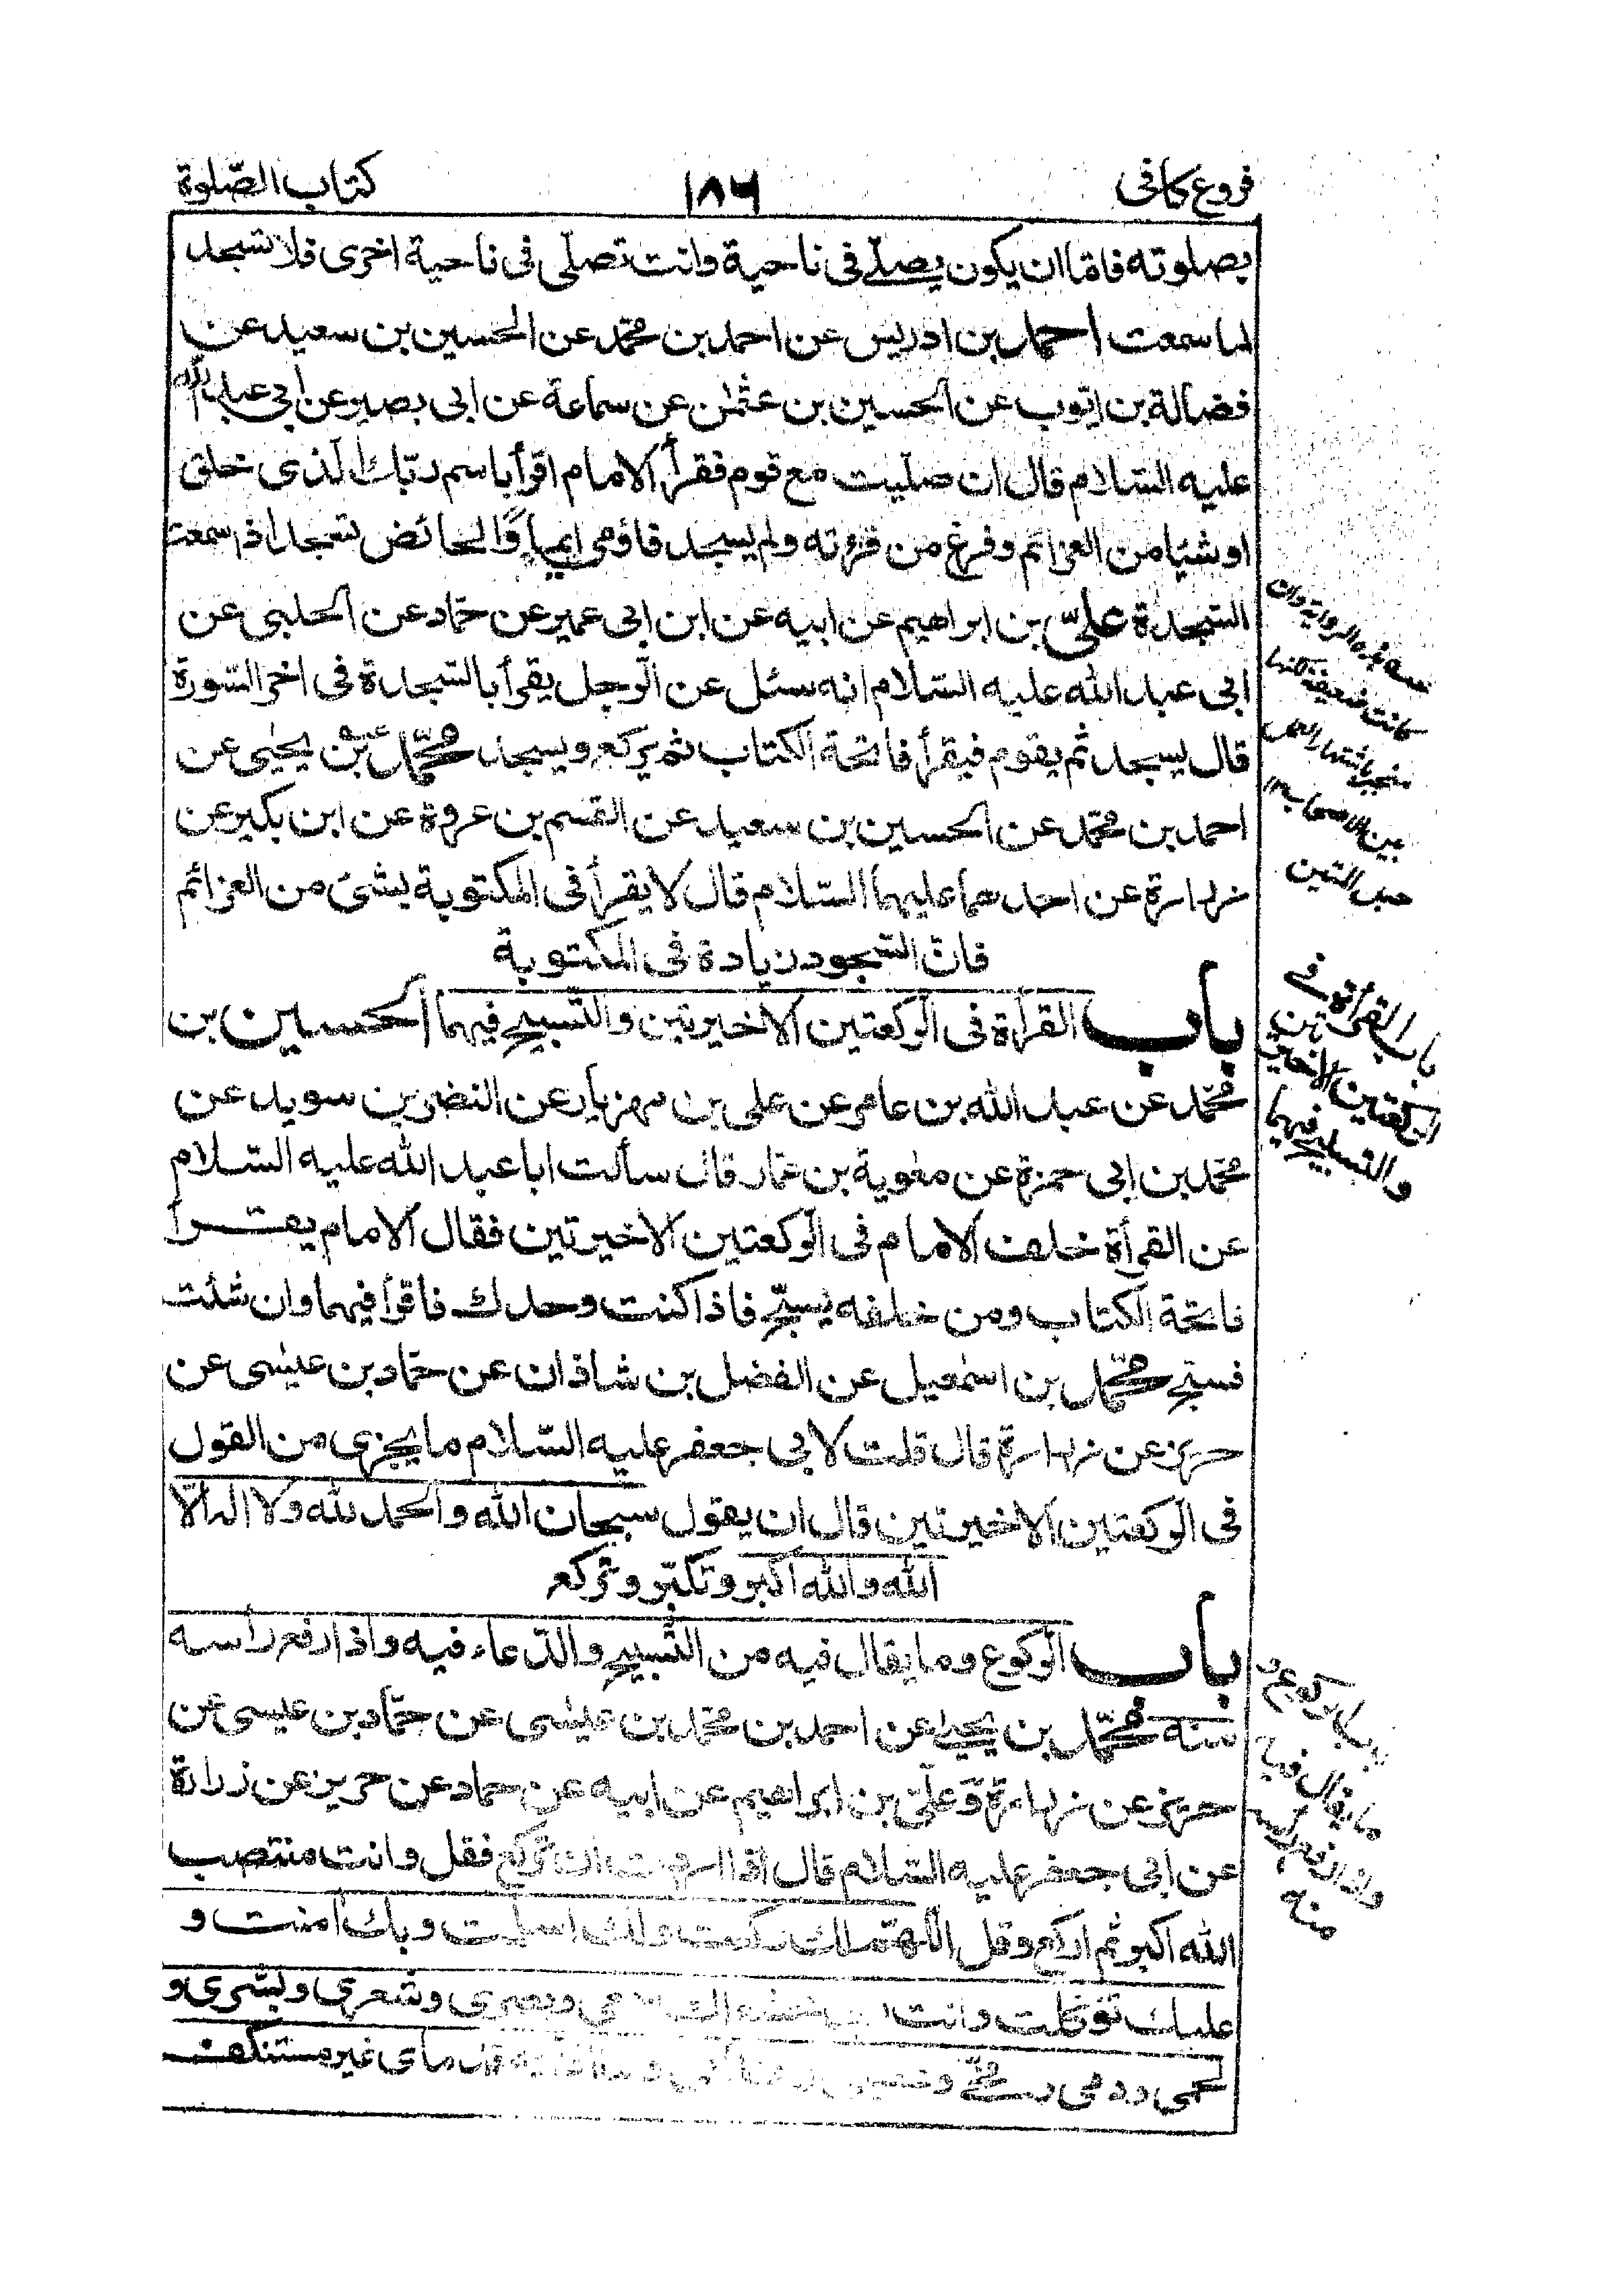 فروع كافى
١٨٦
كتاب الصّلوة
بصلوته فامّا ان يكون يصلّى فى ناحية وانت تصلّى فى ناحية اخرى فلا تسجد
لما سمعت احمد بن ادريس عن احمد بن محمّد عن الحسين بن سعيد عن
فضالة بن ايّوب عن الحسين بن عثمٰن عن سماعة عن ابى بصير عن ابى عبد الله
عليه السّلام قال ان صلّيت مع قوم فقرأ الامام اقرأ باسم ربّك الّذى خلق
او شيئا من العزائم وفرغ من قرءته ولم يسجد فاؤمى ايماء والحائض تسجد اذا سمعت
السّجدة علىّ بن ابراهيم عن ابيه عن ابن ابى عمير عن حمّاد عن الحلبى عن
ابى عبد الله عليه السّلام انه سئل عن الرّجل يقرأ بالسّجدة فى اخر السّورة
قال يسجد ثم يقوم فيقرأ فاتحة الكتاب ثم يركع ويسجد محمّد بن يحيٰى عن
احمد بن محمّد عن الحسين بن سعيد عن القسم بن عروة عن ابن بكير عن
زرارة عن احدهما عليهما السّلام قال لا يقرأ فى المكتوبة بشئ من العزائم
فانّ السّجود زيادة فى المكتوبة
باب القرأة فى الرّكعتين الاخيرتين والتّسبيح فيهما الحسين بن
محمّد عن عبد الله بن عامر عن على بن مهزيار عن النضر بن سويد عن
محمّد بن ابى حمزة عن معٰوية بن عمّار قال سألت ابا عبد الله عليه السّلام
عن القرأة خلف الامام فى الرّكعتين الاخيرتين فقال الامام يقرأ
فاتحة الكتاب ومن خلفه يسبّح فاذا كنت وحدك فاقرأ فيهما وان شئت
فسبّح محمّد بن اسمٰعيل عن الفضل بن شاذان عن حمّاد بن عيسى عن
حريز عن زرارة قال قلت لابى جعفر عليه السّلام ما يجزى من القول
فى الرّكعتين الاخيرتين قال ان يقول سبحان الله والحمد لله ولا اله الّا
الله والله اكبر وتكبّر وتركع
باب الرّكوع وما يقال فيه من التّسبيح والدّعاء فيه واذا رفع رأسه
منه محمّد بن يحيىٰ عن احمد بن محمّد بن عيسٰى عن حمّاد بن عيسى عن
حريز عن زرارة وعلىّ بن ابراهيم عن ابيه عن حماد عن حريز عن زرارة
عن ابى جعفر عليه السّلام قال اذا اردت ان تركع فقل وانت منتصب
الله اكبر ثم اركع وقل اللّهمّ لك ركعت ولك اسلمت وبك امنت و
عليك توكّلت وانت وبصرى وشعرى وبشرى و
لحمى ودمى ومخّى غير مستنكف
كانت ضعيفة
بين الاصحاب
حبل المتين
باب القرأة فى
الركعتين الاخيرتين
والتسبيح فيهما
باب الركوع و
ما يقال فيه
واذا رفع رأسه
منه